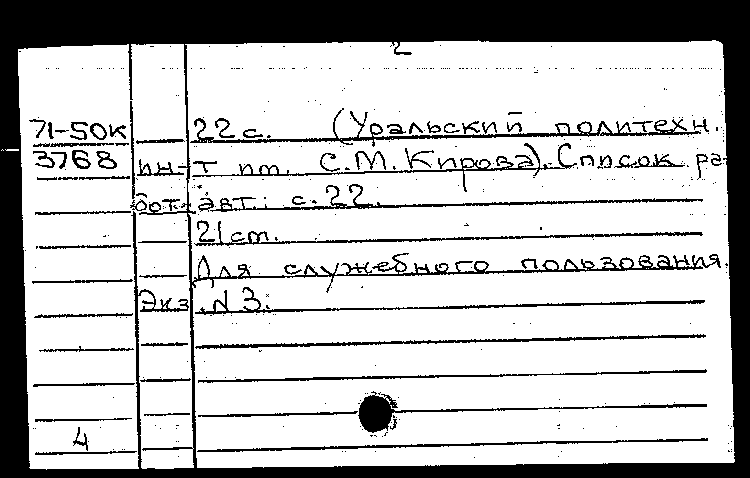 2
71-50к 22 с. (Уральский политехн.
3768 ин-т им. С.М. Кирова). Список ра-
бот авт.: с. 22.
21 см.
Для служебного пользования.
Экз. N 3.
4